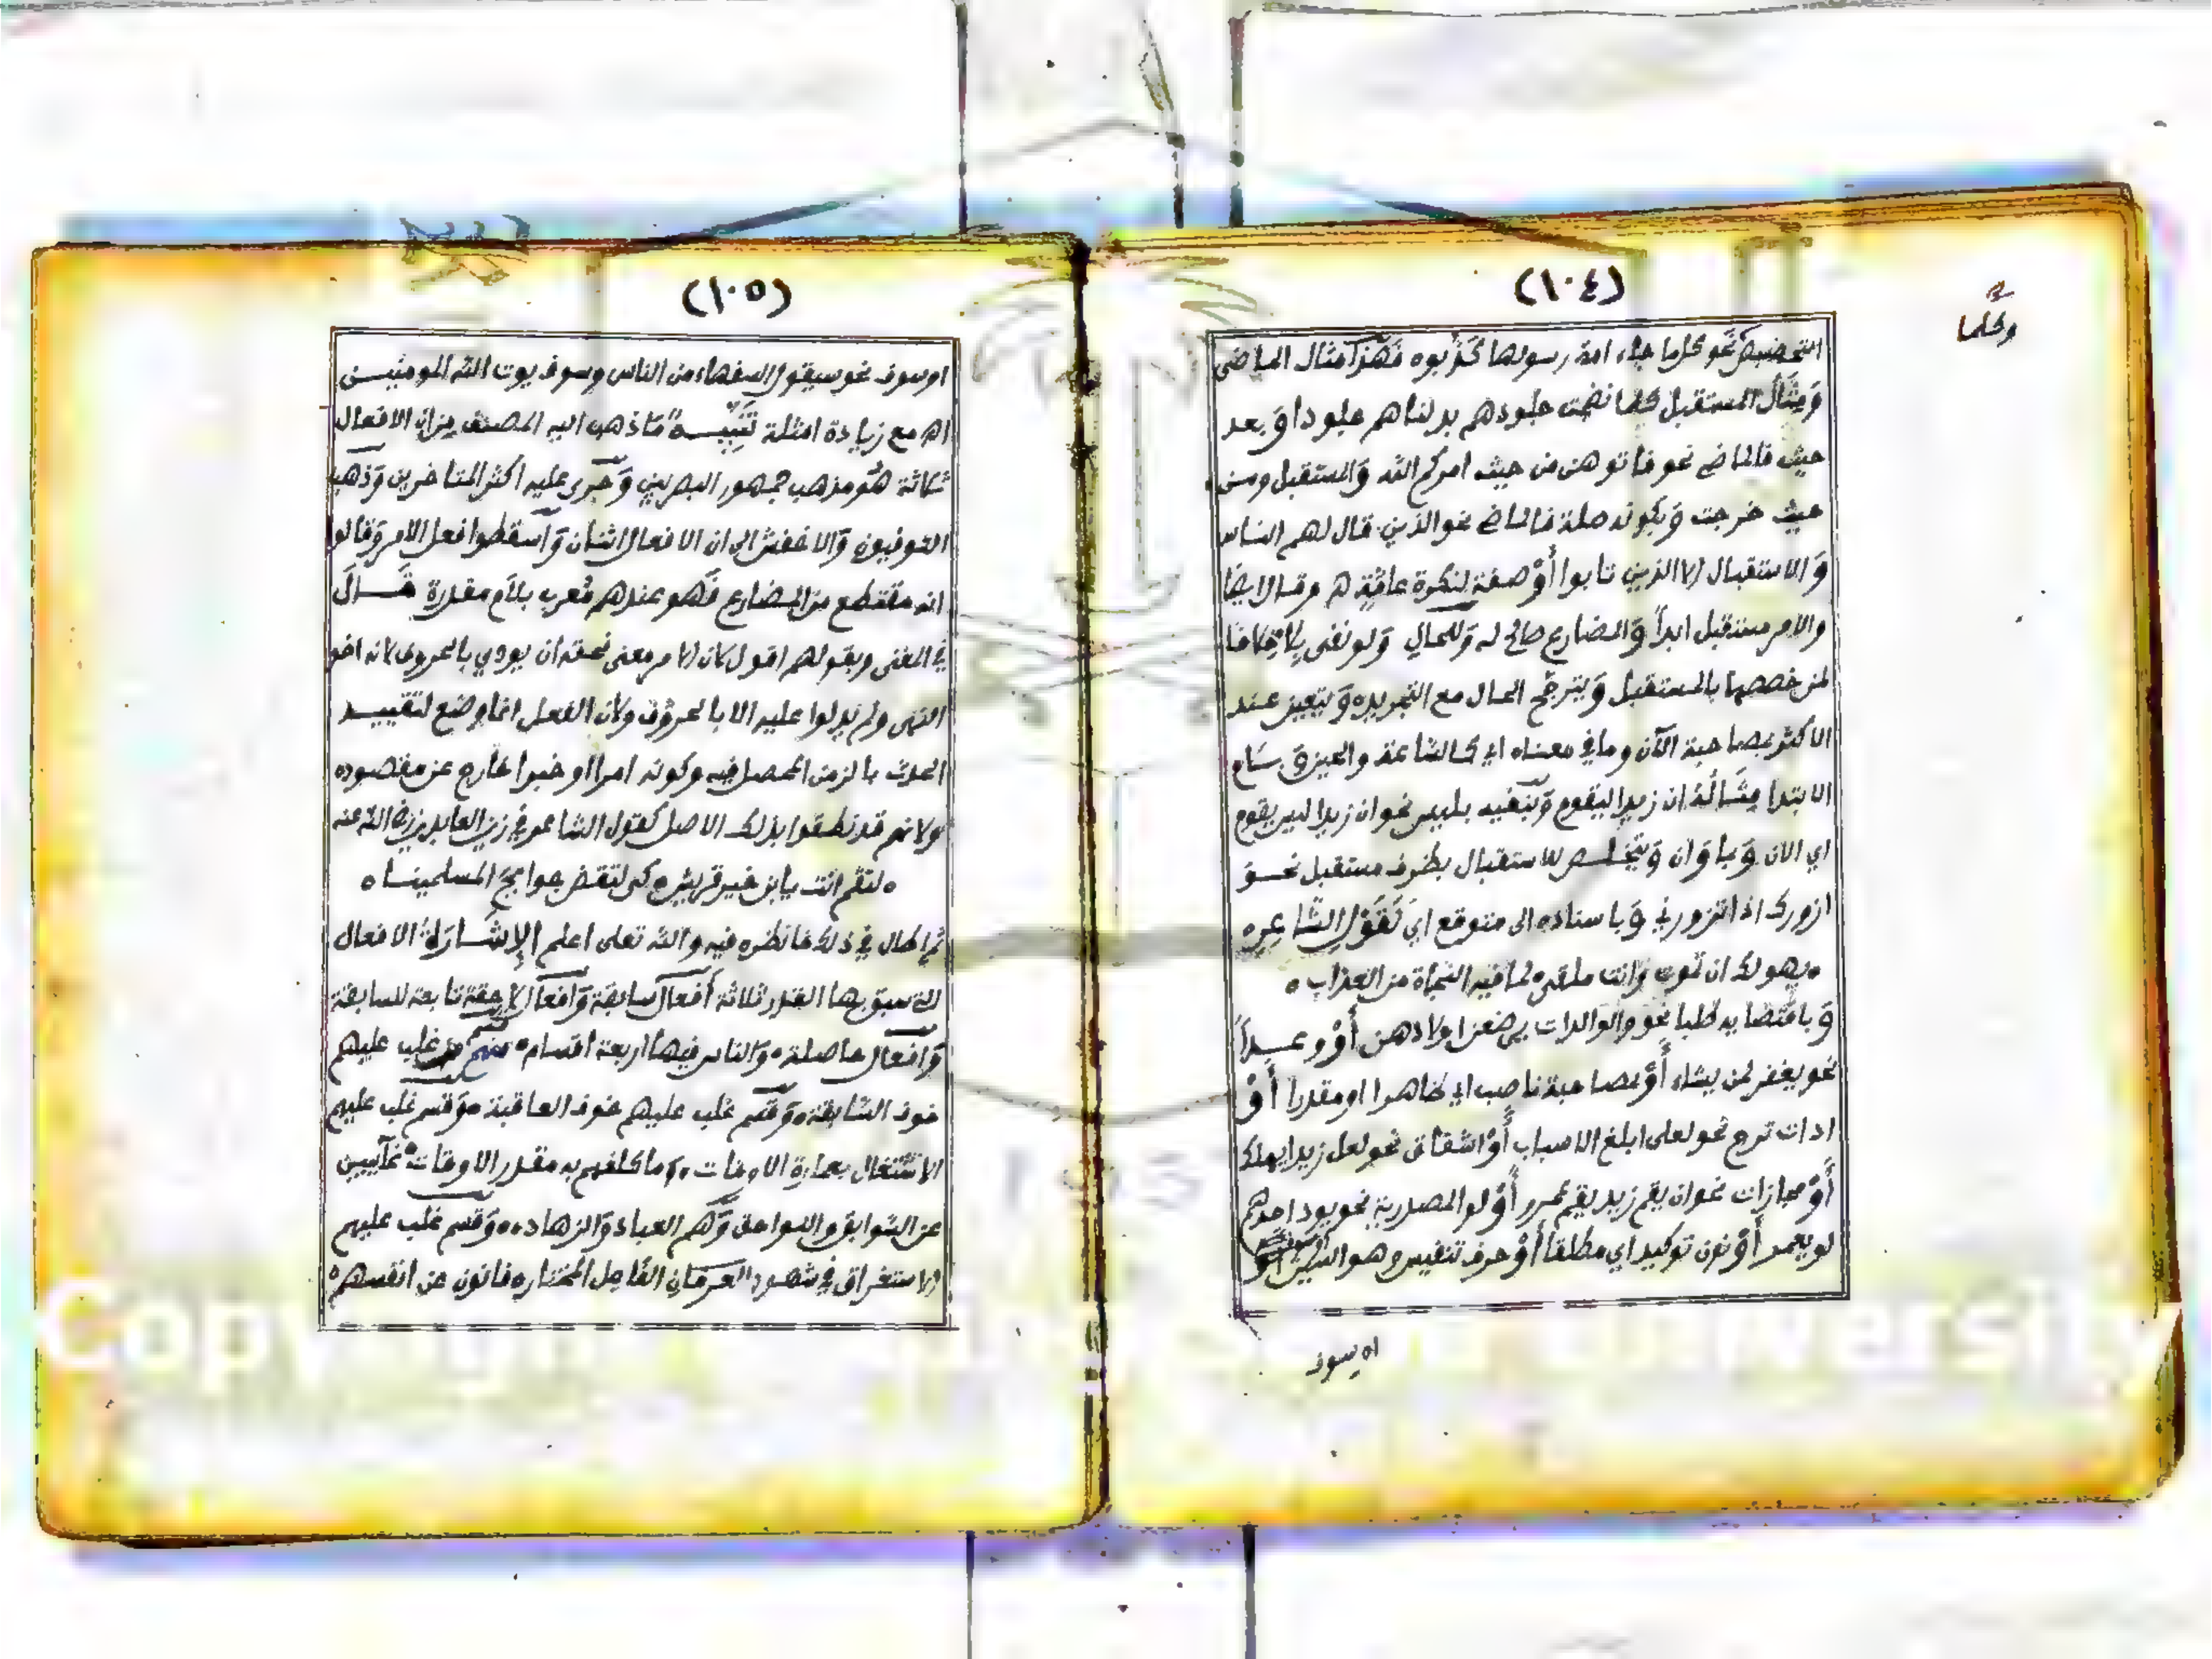 (١٠٤)
وكلما
التحضيض نحو كلما جاء امة رسولها كذبوه فهذا مثال الماضي
ومثال المستقبل كلما نضجت جلودهم بدلناهم جلودا وبعد
حيث فالماضي نحو فاتوهن من حيث امركم الله والمستقبل ومن
حيث خرجت وبكونه صلة فالماضي نحو الذين قال لهم الناس
والاستقبال الا الذين تابوا أو صفة لنكرة عامة وقالا ايضا
والامر مستقبل ابداً والمضارع صالح له وللحال ولو نفي بلا خلافا
لمن خصصها بالمستقبل ويترجح الحال مع التجريد ويتعين عند
الاكثر بمصاحبة الآن وما في معناه اي كالساعة والحين و بلام
الابتدا مثاله ان زيدا ليقوم وبنفيه بليس نحو ان زيدا ليس يقوم
اي الان وبما وان ويتخلص للاستقبال بظرف مستقبل نحو
ازورك اذا تزورني وباسناده الى متوقع اي كقول الشاعر
يهولك ان تموت وانت ملقى لما فيه النجاة من العذاب
وباقتضايه طلبا نحو والوالدات يرضعن اولادهن أو وعداً
نحو يغفر لمن يشاء أو بمصاحبة ناصب اي ظاهرا او مقدرا أو
ادات ترج نحو لعلي ابلغ الاسباب أو اشفاق نحو لعل زيدا يهلك
أو مجازات نحو ان يقم زيد يقم عمرو أو لو المصدرية نحو يود احدهم
لو يعمر أو نون توكيد اي مطلقا أو حرف تنفيس وهو السين أو
او سوف
(١٠٥)
او سوف نحو سيقول السفهاء من الناس وسوف يوت الله المومنين
اهـ مع زيادة امثلة تنبيه ما ذهب اليه المصنف من ان الافعال
ثلاثة هو مذهب جمهور البصريين وجرى عليه اكثر المتاخرين وذهب
الكوفيون والاخفش الى ان الافعال اثنان وأسقطوا فعل الامر وقالوا
انه مقتطع من المضارع فهو عندهم معرب بلام مقدرة قال
في المغنى وبقولهم اقول لان الامر معنى فحقه ان يودي بالحروف لانه اخو
النهى ولم يدلوا عليه الا بالحروف ولان الفعل انما وضع لتقييد
الحدث بالزمن المحصل فيه وكونه امرا او خبرا خارج عن مقصوده
ولانهم قد نطقوا بذلك الاصل كقول الشاعر في زين العابدين رضي الله عنه
لتقم انت يا ابن خير قريش كي لتقضي حوايج المسلمينا
ثم اطال في ذلك فانظره فيه والله تعلى اعلم الإشارة الافعال
التي سبق بها القدر ثلاثة أفعال سابقة وافعال لاحقة تابعة للسابقة
وافعال حاصلة والناس فيها اربعة اقسام قسم غلب عليهم
خوف السابقة وقسم غلب عليهم خوف العاقبة وقسم غلب عليهم
الاشتغال بعمارة الاوقات وما كلفهم به مقدر الاوقات غآيبين
عن السوابق واللواحق وهم العباد والزهاد وقسم غلب عليهم
الاستغراق في شهود الفاعل المختار فانون عن انفسهم